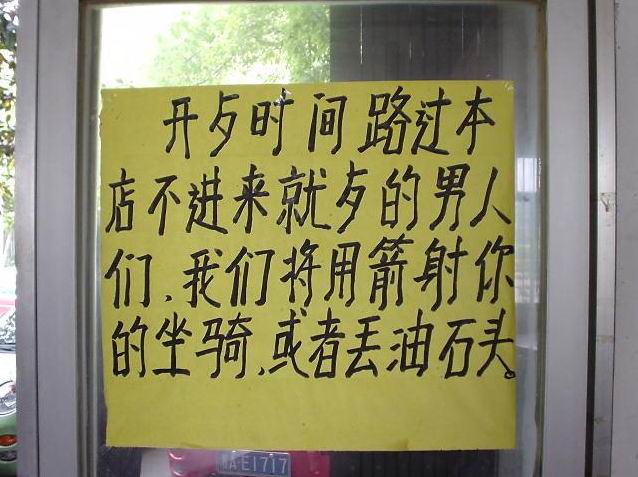 开歺时间路过本
店不进来就歺的男人
们,我们将用箭射你
的坐骑,或者丢油石头。
A E1717